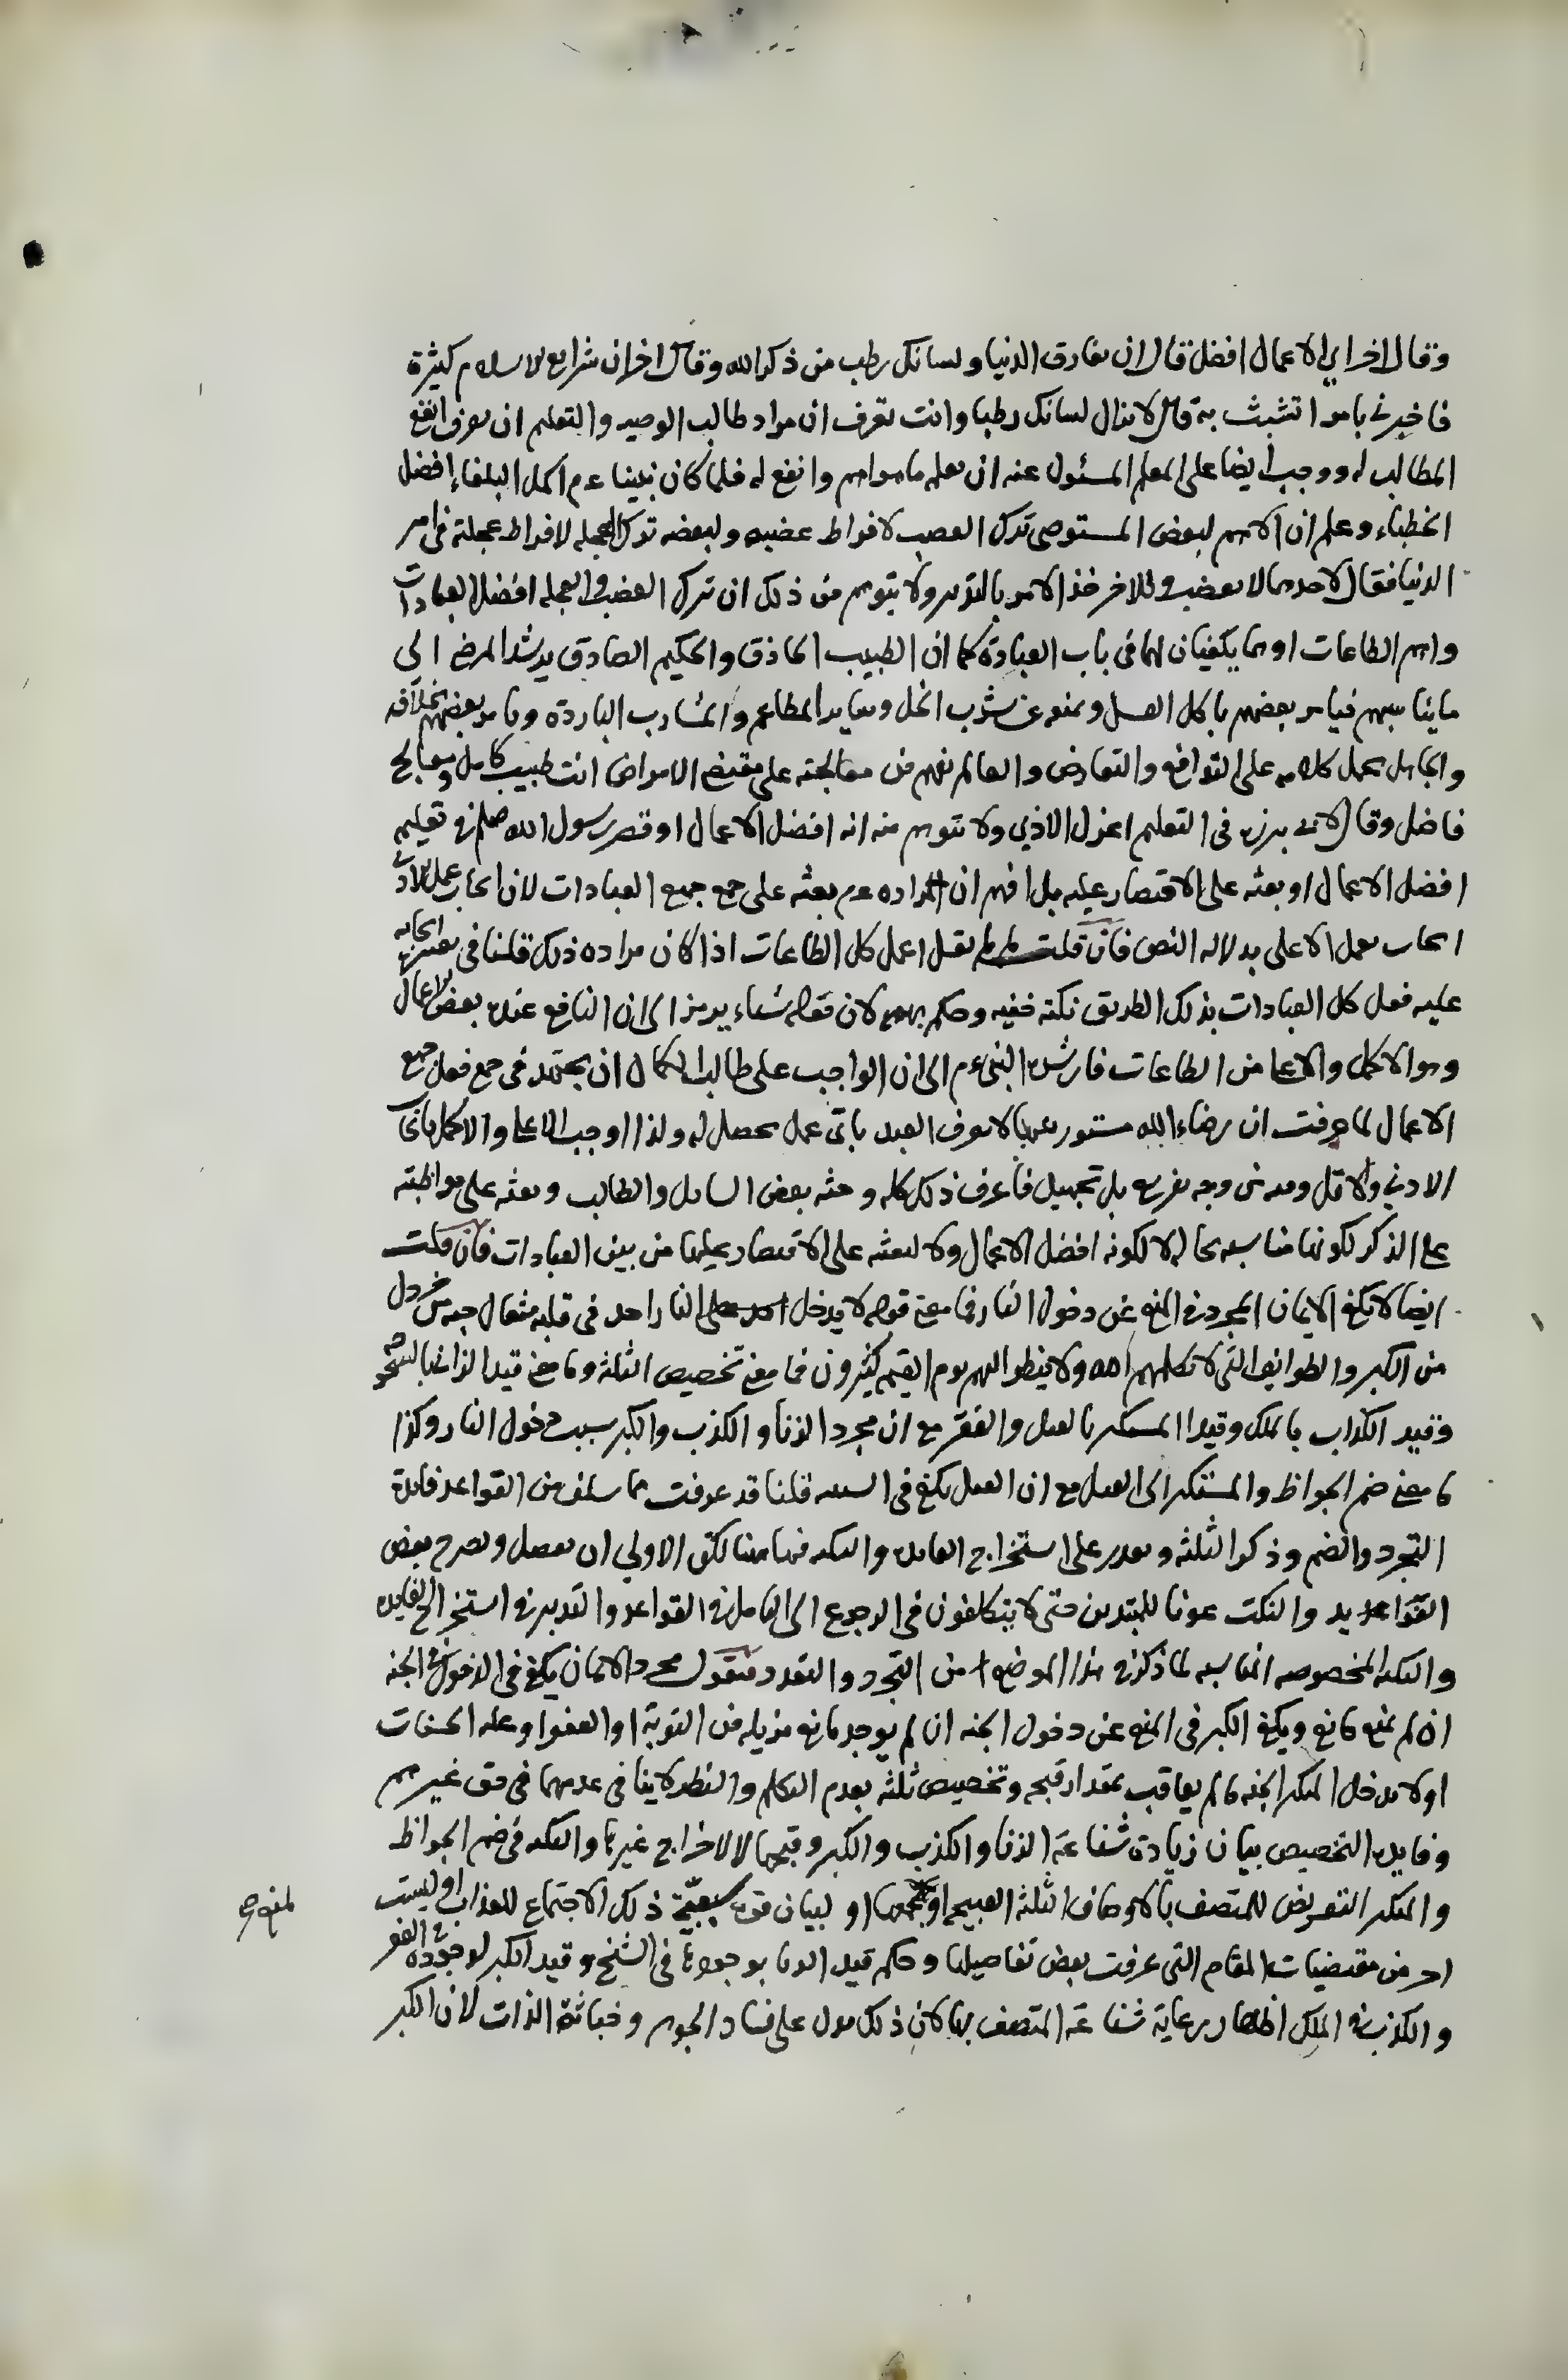 وقال اخر اي الاعمال افضل قال ان تفارق الدنيا ولسانك رطب من ذكر الله وقال اخر ان شرايع الاسلام كثيرة
فاخبرني بامر اتشبث به قال لا تزال لسانك رطبا وانت تعرف ان مراد طالب الوصيه والتعليم ان يعرف انفع
المطالب له ووجب ايضا على المعلم المسئول عنه ان يعلم ما هو اهم وانفع له فلما كان نبينا عم اكمل البلغاء افضل
الخطباء وعلم ان الاهم لبعض المستوصى ترك الغضب لافراط غضبه ولبعضه ترك العجله لافراط عجلته في امر
الدنيا فقال لاحدهما لا تغضب وللاخر خذ الامر بالتدبير ولا يتوهم من ذلك ان ترك الغضب والعجله افضل العبادات
واهم الطاعات او هما يكفيان لهما في باب العبادة كما ان الطبيب الحاذق والحكيم الصادق يرشد المرضى الى
ما يناسبهم فيامر بعضهم باكل العسل ويمنعه عن شرب الخل وساير المطاعم والمشارب الباردة ويامر بعضهم بخلافه
والجاهل يحمل كلامه على التوافع والتعارض والعالم يفهم من معالجته على مقتضى الامراض انت طبيب كامل ومعالج
فاضل وقال لابى برزه في التعليم اعزل الاذي ولا تتوهم منه انه افضل الاعمال او قصر رسول الله صلعم في تعليم
افضل الاعمال او بعثه على الاقتصار عليه بل افهم ان المراده عم بعثه على جمع جميع العبادات لان ايجاب عمل الادنى
ايجاب عمل الاعلى بدلاله النص فان قلت لم لم يقل اعمل كل الطاعات اذا كان مراده ذلك قلنا في تعبير ايجابه
عليه فعل كل العبادات بذلك الطريق نكته خفيه وحكم لان قوله شاء يرمز الى ان النافع عنده بعض الاعمال
وهو الاكمل والاعلى من الطاعات فارشده النبي عم الى ان الواجب على طالب الكمال ان يجتهد في جمع فعل جميع
الاعمال لما عرفت ان رضاء الله مستور فيها لا يعرف العبد باي عمل يحصل له ولذا اوجب الاعلى والاكمل بايجاب
الادنى والاقل وفيه من وجه تقريع بل تجهيل فاعرف ذلك كله وحثه بعض السايل والطالب وبعثه على مواظبته
على الذكر لكونها مناسبه بحاله لا لكونه افضل الاعمال ولا لبعثه على الاقتصار عليها من بين العبادات فان قلت
ايضا لا يكفي الايمان المجرد في المنع عن دخول النار فما معنى قوله لا يدخل النار احد في قلبه مثقال حبه من خردل
من الكبر والطوايف التى لا يكلمهم الله ولا ينظر اليهم يوم القيمه كثيرون فما معنى تخصيص الثلثة وما معنى قيد الزانى بالشيخوخه
وقيد الكذاب بالملك وقيد المستكبر بالعيل والفقر مع ان مجرد الزنا والكذب والكبر سبب دخول النار وكذا
ما معنى ضم الجواظ والمستكبر الى العتل مع ان العتل يكفي في السببيه قلنا قد عرفت مما سلف من القواعد فايدة
التجرد والضم وذكر الثلثه وتقدر على استخراج الفايده والنكته فيما هنا لكن الاولى ان نفصل ونصرح بعض
القواعد والنكت عونا للمبتدين حتى لا يتكلفون في الرجوع الى التامل في القواعد والتدبير في استخراج الفايده
والنكته المخصوصه المناسبه لما ذكر في هذا الموضع من التجرد والتعدد فنقول مجرد الايمان يكفي في الدخول في الجنه
ان لم يمنع مانع ويكفي الكبر في المنع عن دخول الجنه ان لم يوجد مانع مزيله من التوبة او العفو او غلبه الحسنات
او لا يدخل المتكبر الجنه ما لم يعاقب بمقدار قبحه وتخصيص ثلثه بعدم التكلم والنظر لا ينافي عدمهما في حق غيرهم
وفايده التخصيص بيان زيادة شناعة الزنا والكذب والكبر وقبحها لا لاخراج غيرها والنكته في ضم الجواظ
والمتكبر التعريض للمتصف بالاوصاف الثلثه القبيحه او لبيان قوة سببيّة ذلك الاجتماع للعذاب او ليست
امر من مقتضيات المقام التى عرفت بعض تفاصيلها وحكم قيد الزنا بوجودها في الشيخ وقيد الكبر لوجوده في الفقر
والكذب في الملك اظهار رعاية شناعة المتصف بها لان ذلك يدل على فساد الجوهر وخباثة الذات لان الكبر